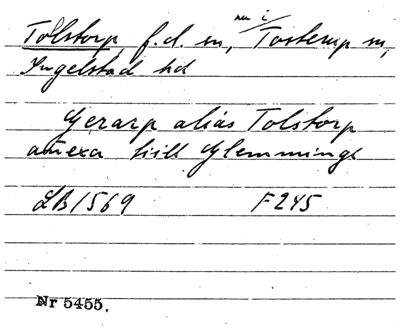 Tolstorp f.d. sn, nu i Tosterup sn,
Ingelstad hd
Gerarp alias Tolstorp
annexa till Glemminge
LB 1569 F 245
Nr 5455.